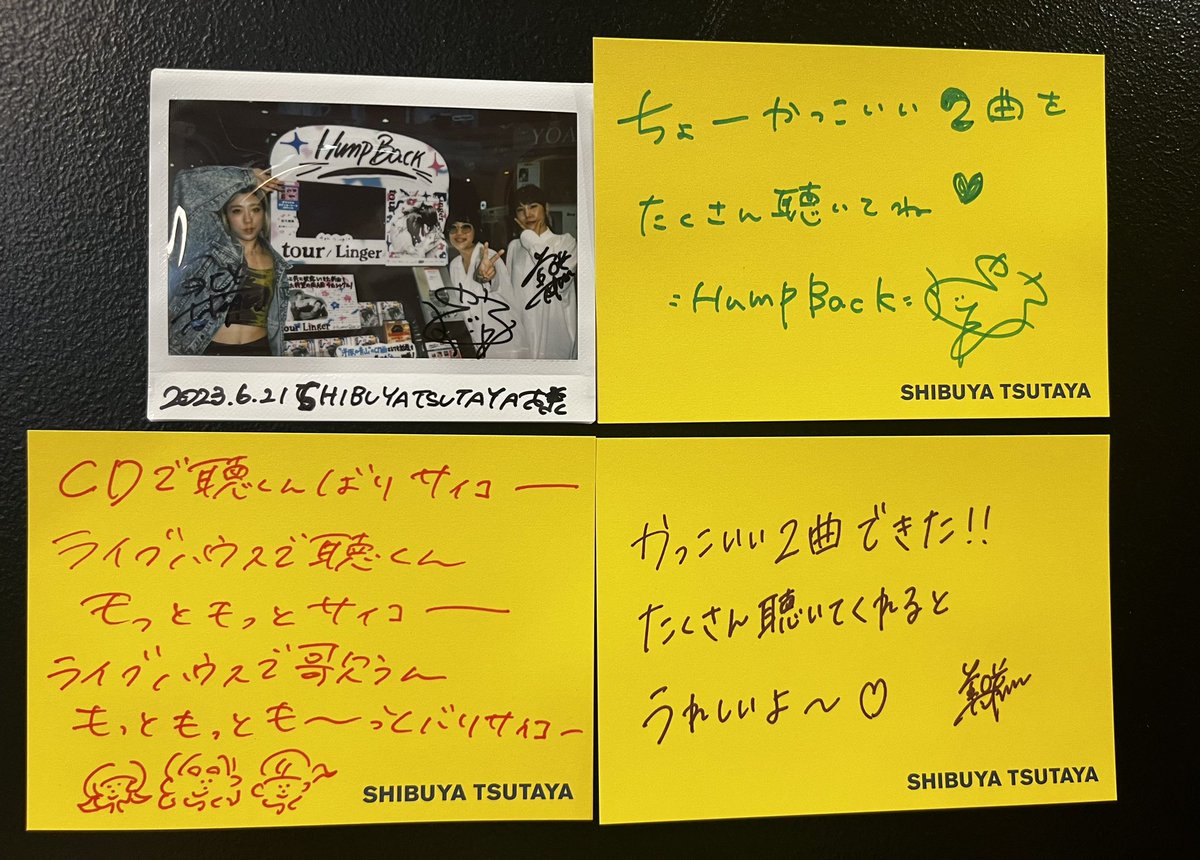 Hump Back
tour / Linger
tour Linger
2023.6.21 SHIBUYA TSUTAYA様
ちょーかっこいい2曲を
たくさん聴いてね
=Hump Back=
SHIBUYA TSUTAYA
CDで聴くんばりサイコー
ライブハウスで聴くん
もっともっとサイコー
ライブハウスで歌うん
もっともっとも〜っとバリサイコー
SHIBUYA TSUTAYA
かっこいい2曲できた!!
たくさん聴いてくれると
うれしいよ〜♡
SHIBUYA TSUTAYA